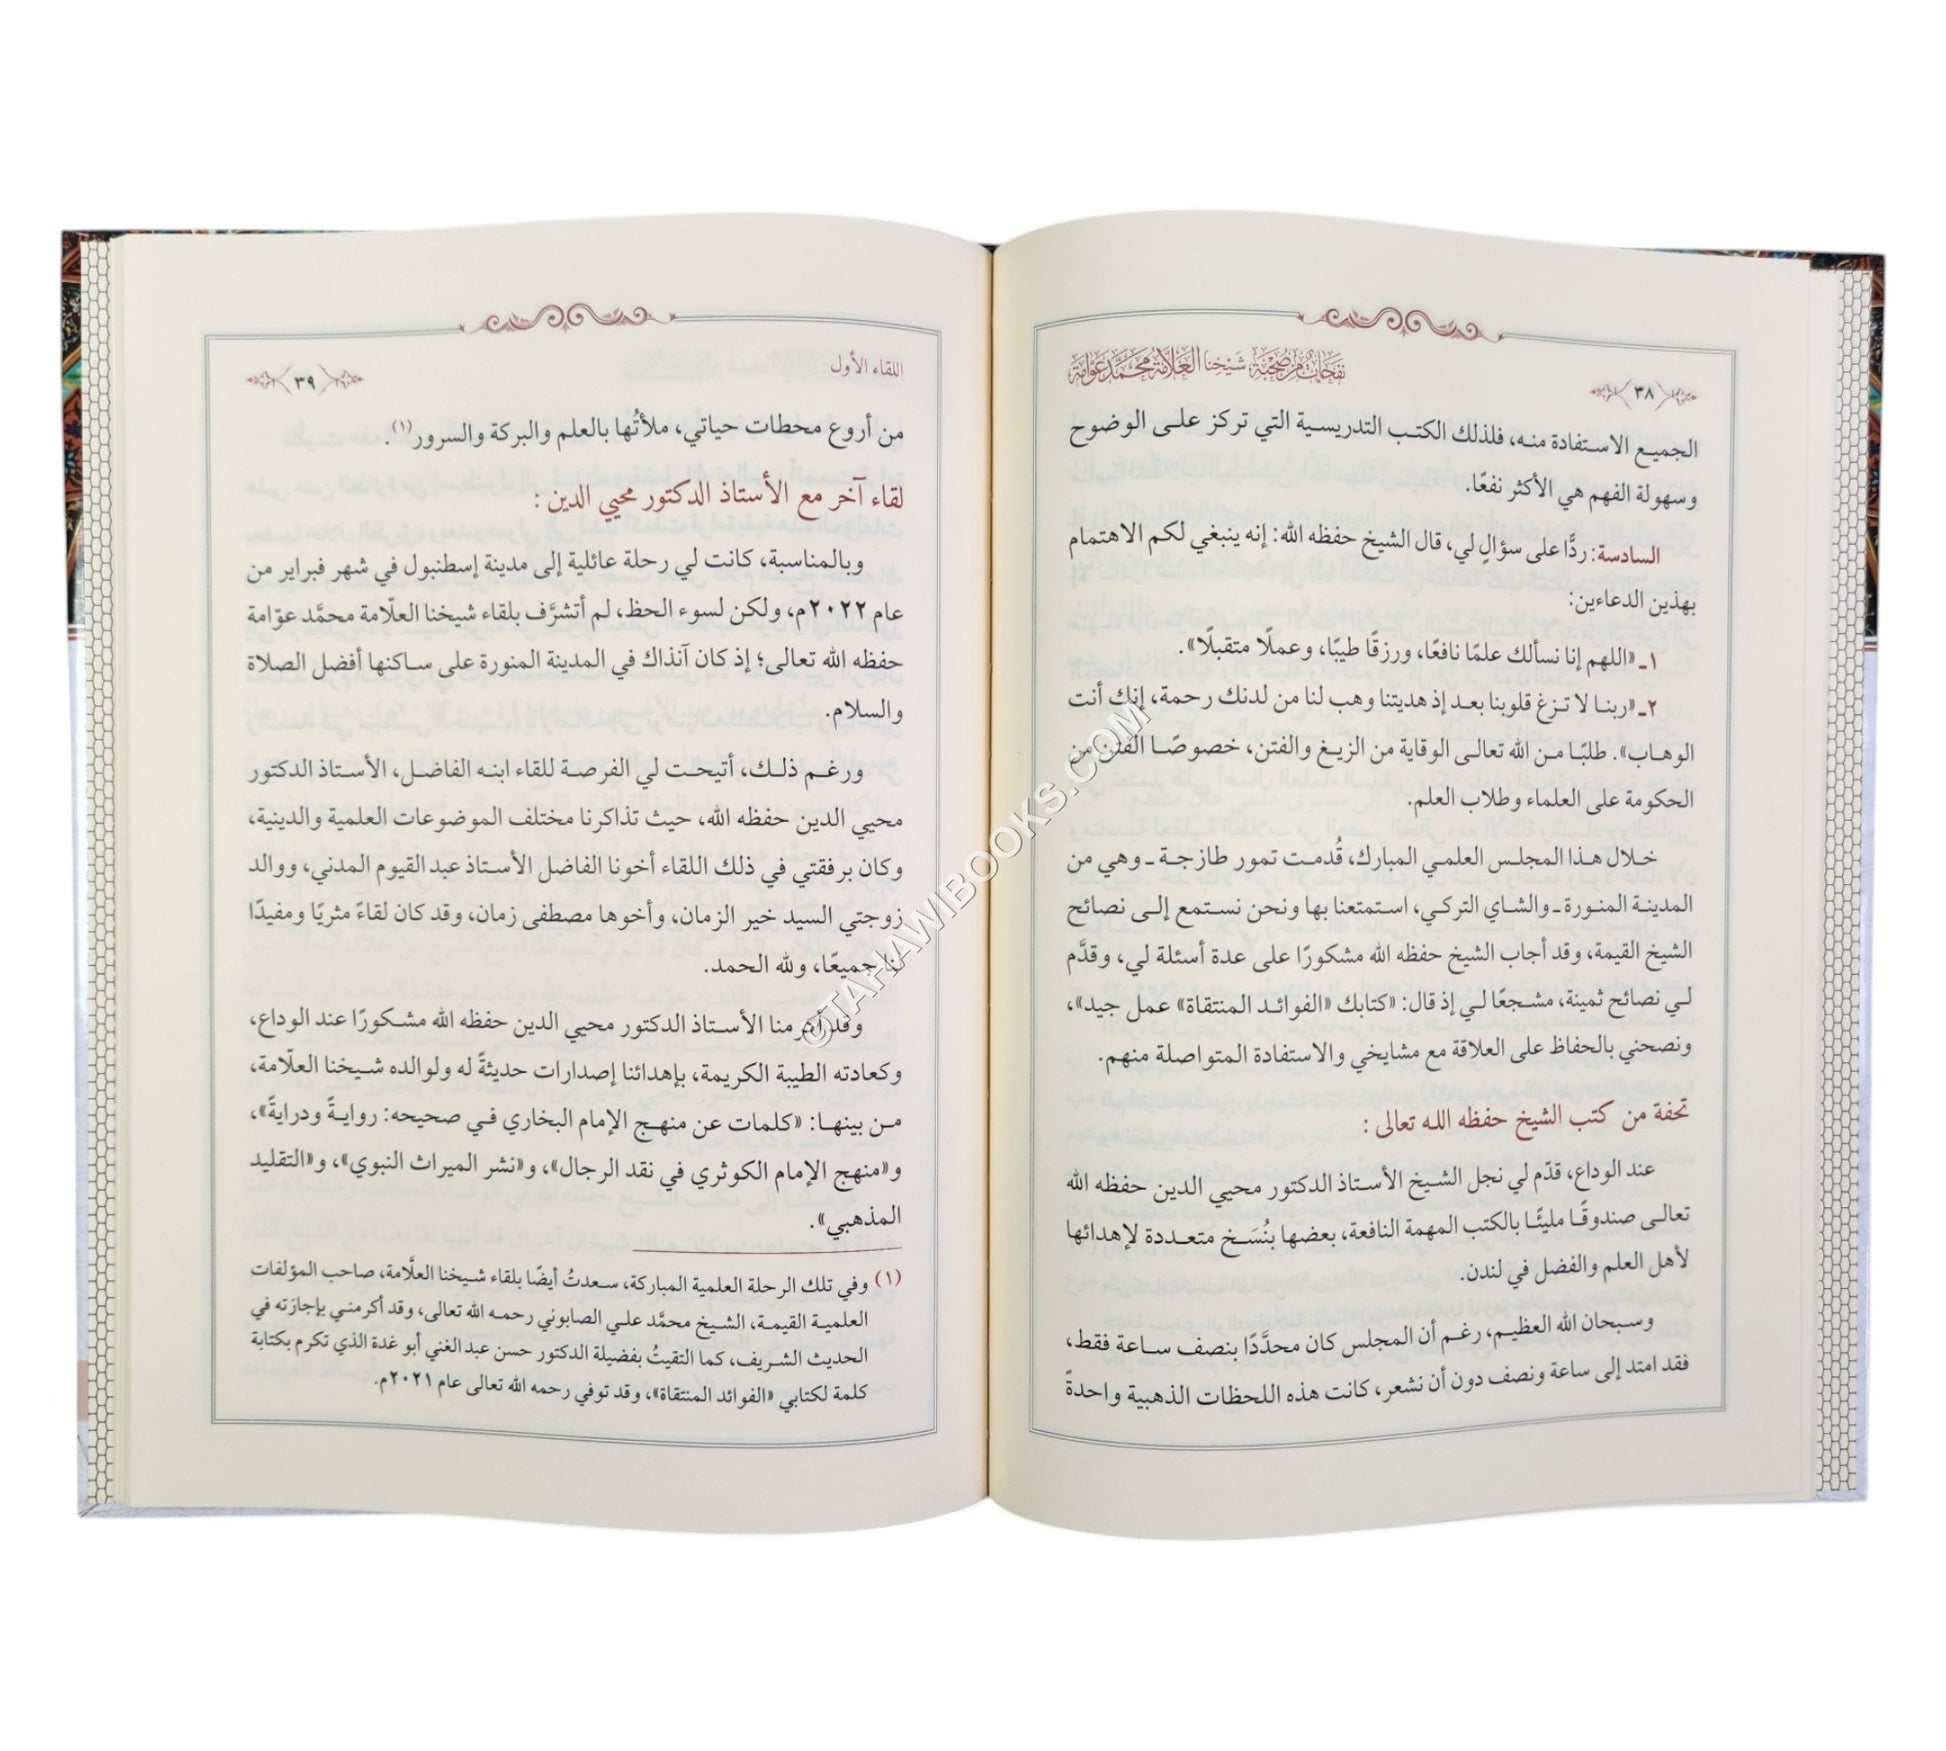 ٣٨
نفحات من صحبة شيخنا العلامة محمد عوامة
الجميع الاستفادة منه، فلذلك الكتب التدريسية التي تركز على الوضوح
وسهولة الفهم هي الأكثر نفعًا.
السادسة: ردًّا على سؤالٍ لي، قال الشيخ حفظه الله: إنه ينبغي لكم الاهتمام
بهذين الدعاءين:
١ـ «اللهم إنا نسألك علمًا نافعًا، ورزقًا طيبًا، وعملًا متقبلًا».
٢ـ «ربنا لا تزغ قلوبنا بعد إذ هديتنا وهب لنا من لدنك رحمة، إنك أنت
الوهاب». طلبًا من الله تعالى الوقاية من الزيغ والفتن، خصوصًا الفتن من
الحكومة على العلماء وطلاب العلم.
خلال هذا المجلس العلمي المبارك، قُدمت تمور طازجة ـ وهي من
المدينة المنورة ـ والشاي التركي، استمتعنا بها ونحن نستمع إلى نصائح
الشيخ القيمة، وقد أجاب الشيخ حفظه الله مشكورًا على عدة أسئلة لي، وقدَّم
لي نصائح ثمينة، مشجعًا لي إذ قال: «كتابك «الفوائد المنتقاة» عمل جيد»،
ونصحني بالحفاظ على العلاقة مع مشايخي والاستفادة المتواصلة منهم.
تحفة من كتب الشيخ حفظه الله تعالى :
عند الوداع، قدّم لي نجل الشيخ الأستاذ الدكتور محيي الدين حفظه الله
تعالى صندوقًا مليئًا بالكتب المهمة النافعة، بعضها بنُسَخ متعددة لإهدائها
لأهل العلم والفضل في لندن.
وسبحان الله العظيم، رغم أن المجلس كان محدَّدًا بنصف ساعة فقط،
فقد امتد إلى ساعة ونصف دون أن نشعر، كانت هذه اللحظات الذهبية واحدةً
اللقاء الأول
٣٩
من أروع محطات حياتي، ملأتُها بالعلم والبركة والسرور(١).
لقاء آخر مع الأستاذ الدكتور محيي الدين :
وبالمناسبة، كانت لي رحلة عائلية إلى مدينة إسطنبول في شهر فبراير من
عام ٢٠٢٢م، ولكن لسوء الحظ، لم أتشرَّف بلقاء شيخنا العلّامة محمَّد عوّامة
حفظه الله تعالى؛ إذ كان آنذاك في المدينة المنورة على ساكنها أفضل الصلاة
والسلام.
ورغم ذلك، أتيحت لي الفرصة للقاء ابنه الفاضل، الأستاذ الدكتور
محيي الدين حفظه الله، حيث تذاكرنا مختلف الموضوعات العلمية والدينية،
وكان برفقتي في ذلك اللقاء أخونا الفاضل الأستاذ عبد القيوم المدني، ووالد
زوجتي السيد خير الزمان، وأخوها مصطفى زمان، وقد كان لقاءً مثريًا ومفيدًا
لنا جميعًا، ولله الحمد.
وقد أكرمنا الأستاذ الدكتور محيي الدين حفظه الله مشكورًا عند الوداع،
وكعادته الطيبة الكريمة، بإهدائنا إصدارات حديثةً له ولوالده شيخنا العلّامة،
من بينها: «كلمات عن منهج الإمام البخاري في صحيحه: روايةً ودرايةً»،
و«منهج الإمام الكوثري في نقد الرجال»، و«نشر الميراث النبوي»، و«التقليد
المذهبي».
(١) وفي تلك الرحلة العلمية المباركة، سعدتُ أيضًا بلقاء شيخنا العلَّامة، صاحب المؤلفات
العلمية القيمة، الشيخ محمَّد علي الصابوني رحمه الله تعالى، وقد أكرمني بإجازته في
الحديث الشريف، كما التقيتُ بفضيلة الدكتور حسن عبد الغني أبو غدة الذي تكرم بكتابة
كلمة لكتابي «الفوائد المنتقاة»، وقد توفي رحمه الله تعالى عام ٢٠٢١م.
©TAHAWIBOOKS.COM